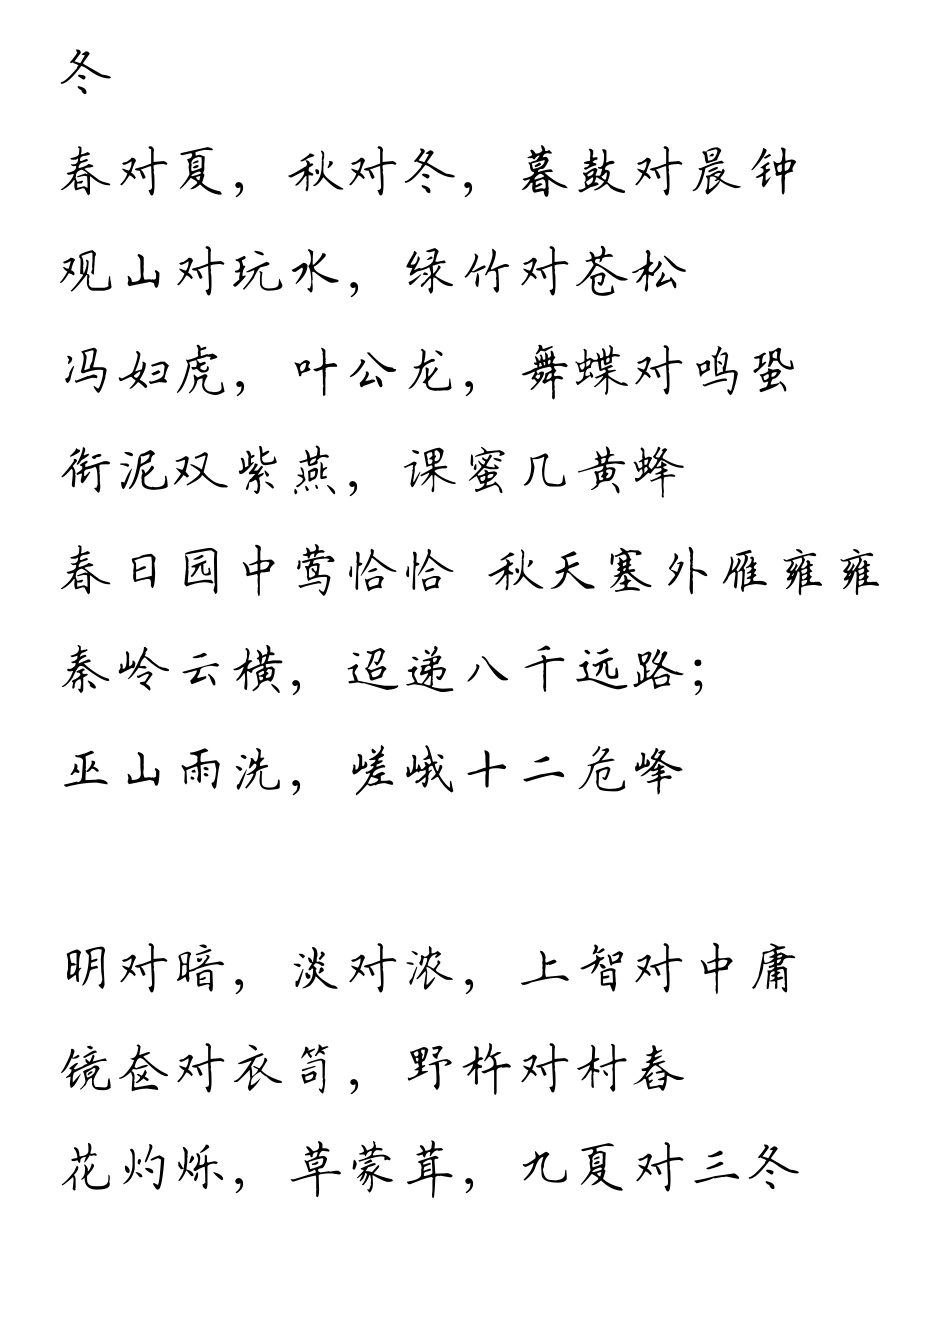 冬
春对夏，秋对冬，暮鼓对晨钟
观山对玩水，绿竹对苍松
冯妇虎，叶公龙，舞蝶对鸣蛩
衔泥双紫燕，课蜜几黄蜂
春日园中莺恰恰 秋天塞外雁雍雍
秦岭云横，迢递八千远路；
巫山雨洗，嵯峨十二危峰
明对暗，淡对浓，上智对中庸
镜奁对衣笥，野杵对村舂
花灼烁，草蒙茸，九夏对三冬